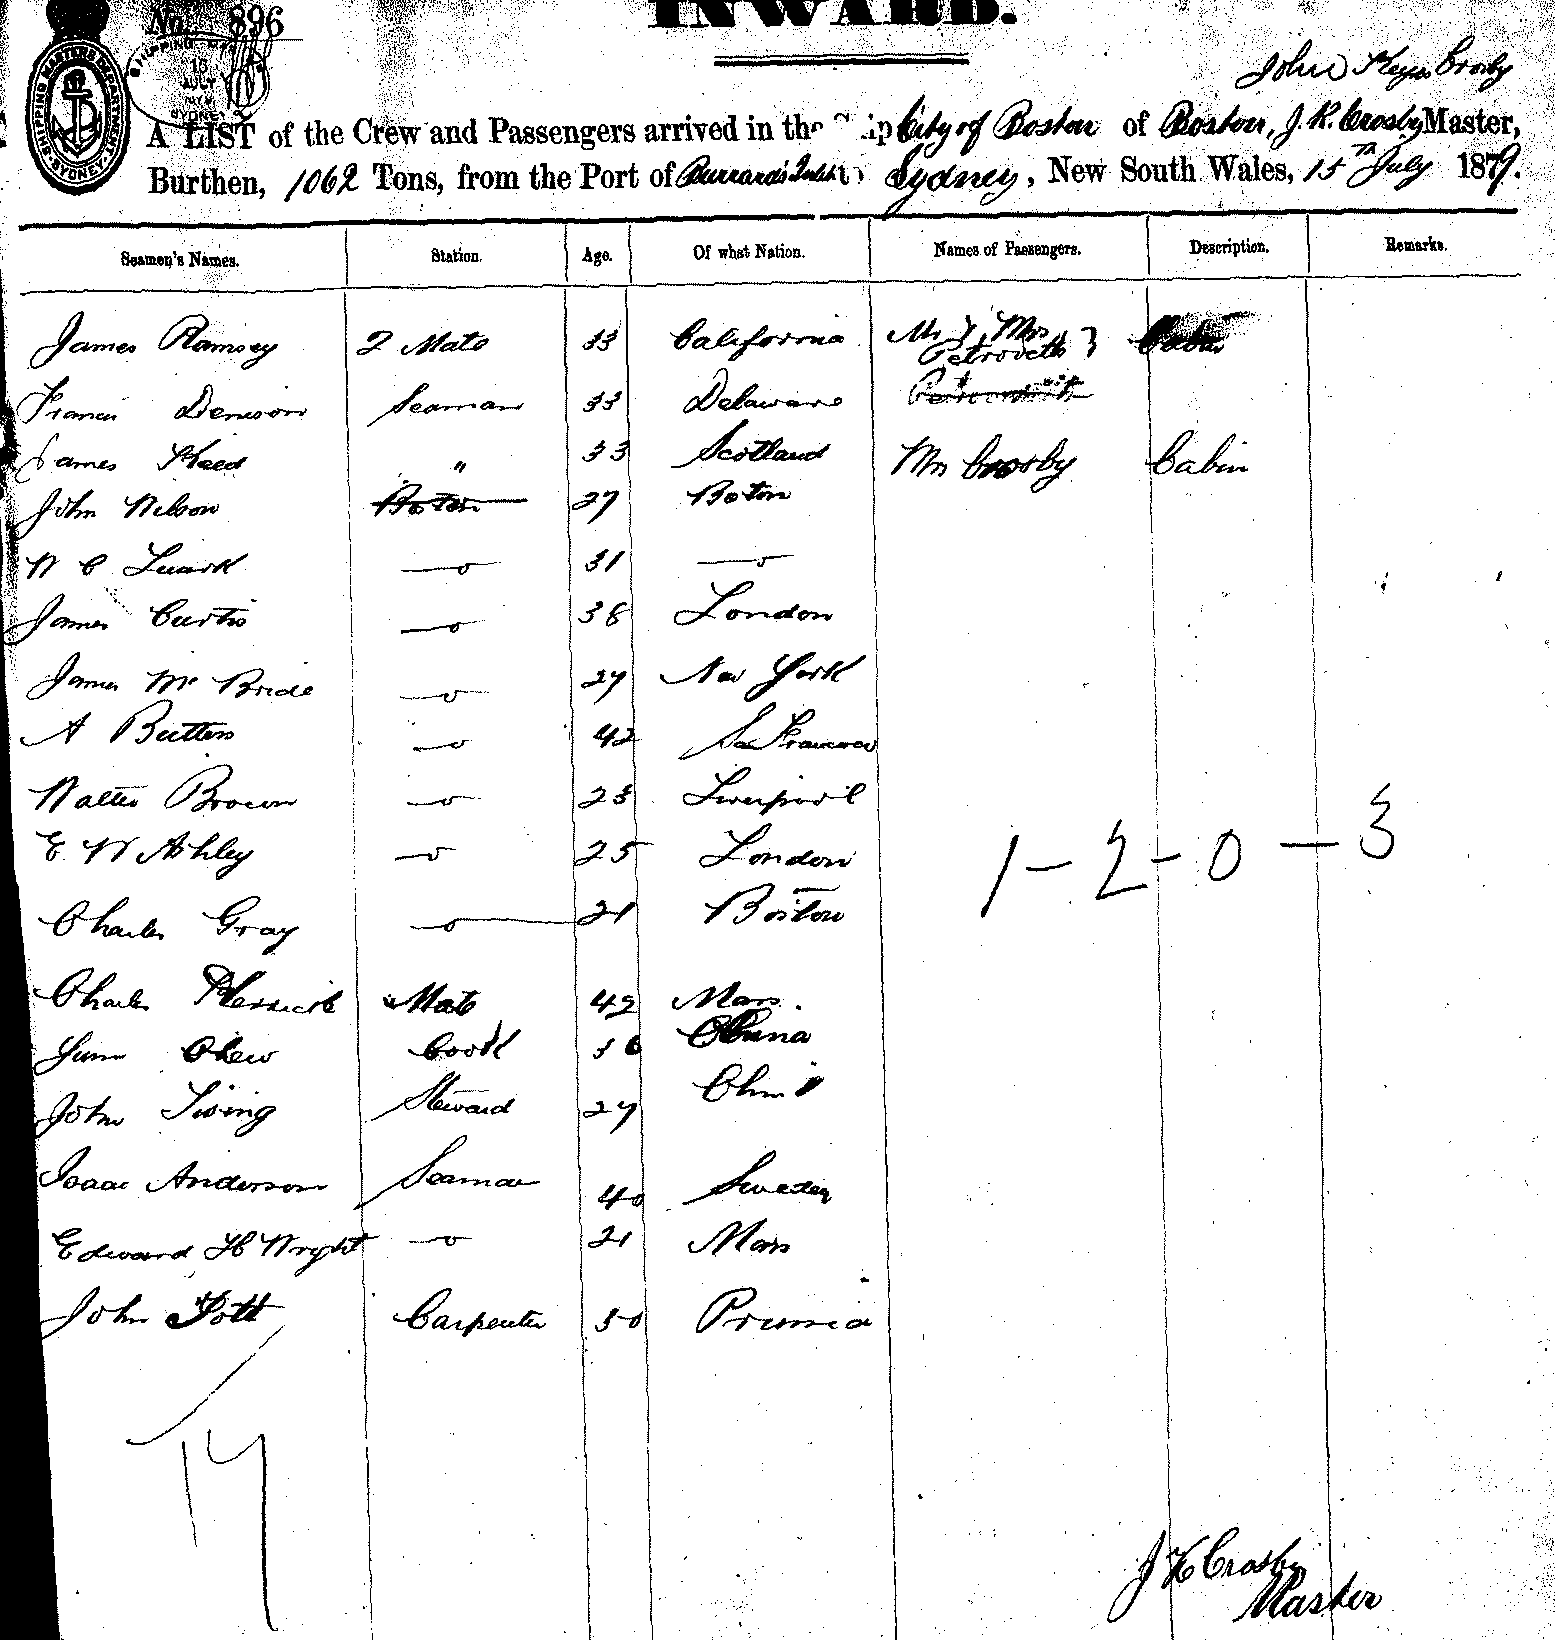 No. 896
INWARD.
SHIPPING MASTERS DEPARTMENT SYDNEY
15 JULY SYDNEY
John Keyes Crosby
A LIST of the Crew and Passengers arrived in the Ship City of Boston of Boston, J. K. Crosby Master,
Burthen, 1062 Tons, from the Port of Burrard's Inlet to Sydney, New South Wales, 15th July 1879.
Seamen's Names. Station. Age. Of what Nation. Names of Passengers. Description. Remarks.
James Ramsey 2 Mate 33 California Mr & Mrs Petrovetts } Cabin
Francis Denison Seaman 33 Delaware
James " 33 Scotland Mrs Crosby Cabin
John Nelson Boton 27 Boton
W C Luark —o 31 —o
James Curtis —o 38 London
James Mc Bride —o 27 New York
A Butters —o 42 San Francisco
Walter Brown —o 23 Liverpool
E W Ashley —o 25 London
Charles Gray —o 21 Boston
1 - 2 - 0 - 3
Charles Herrick Mate 42 Mass.
Chew Cook 36 China
John Steward 27 China
Isaac Anderson Seaman 40 Sweden
Edward H Wright —o 21 Mass
John Pott Carpenter 50 Prussia
17
J K Crosby
Master